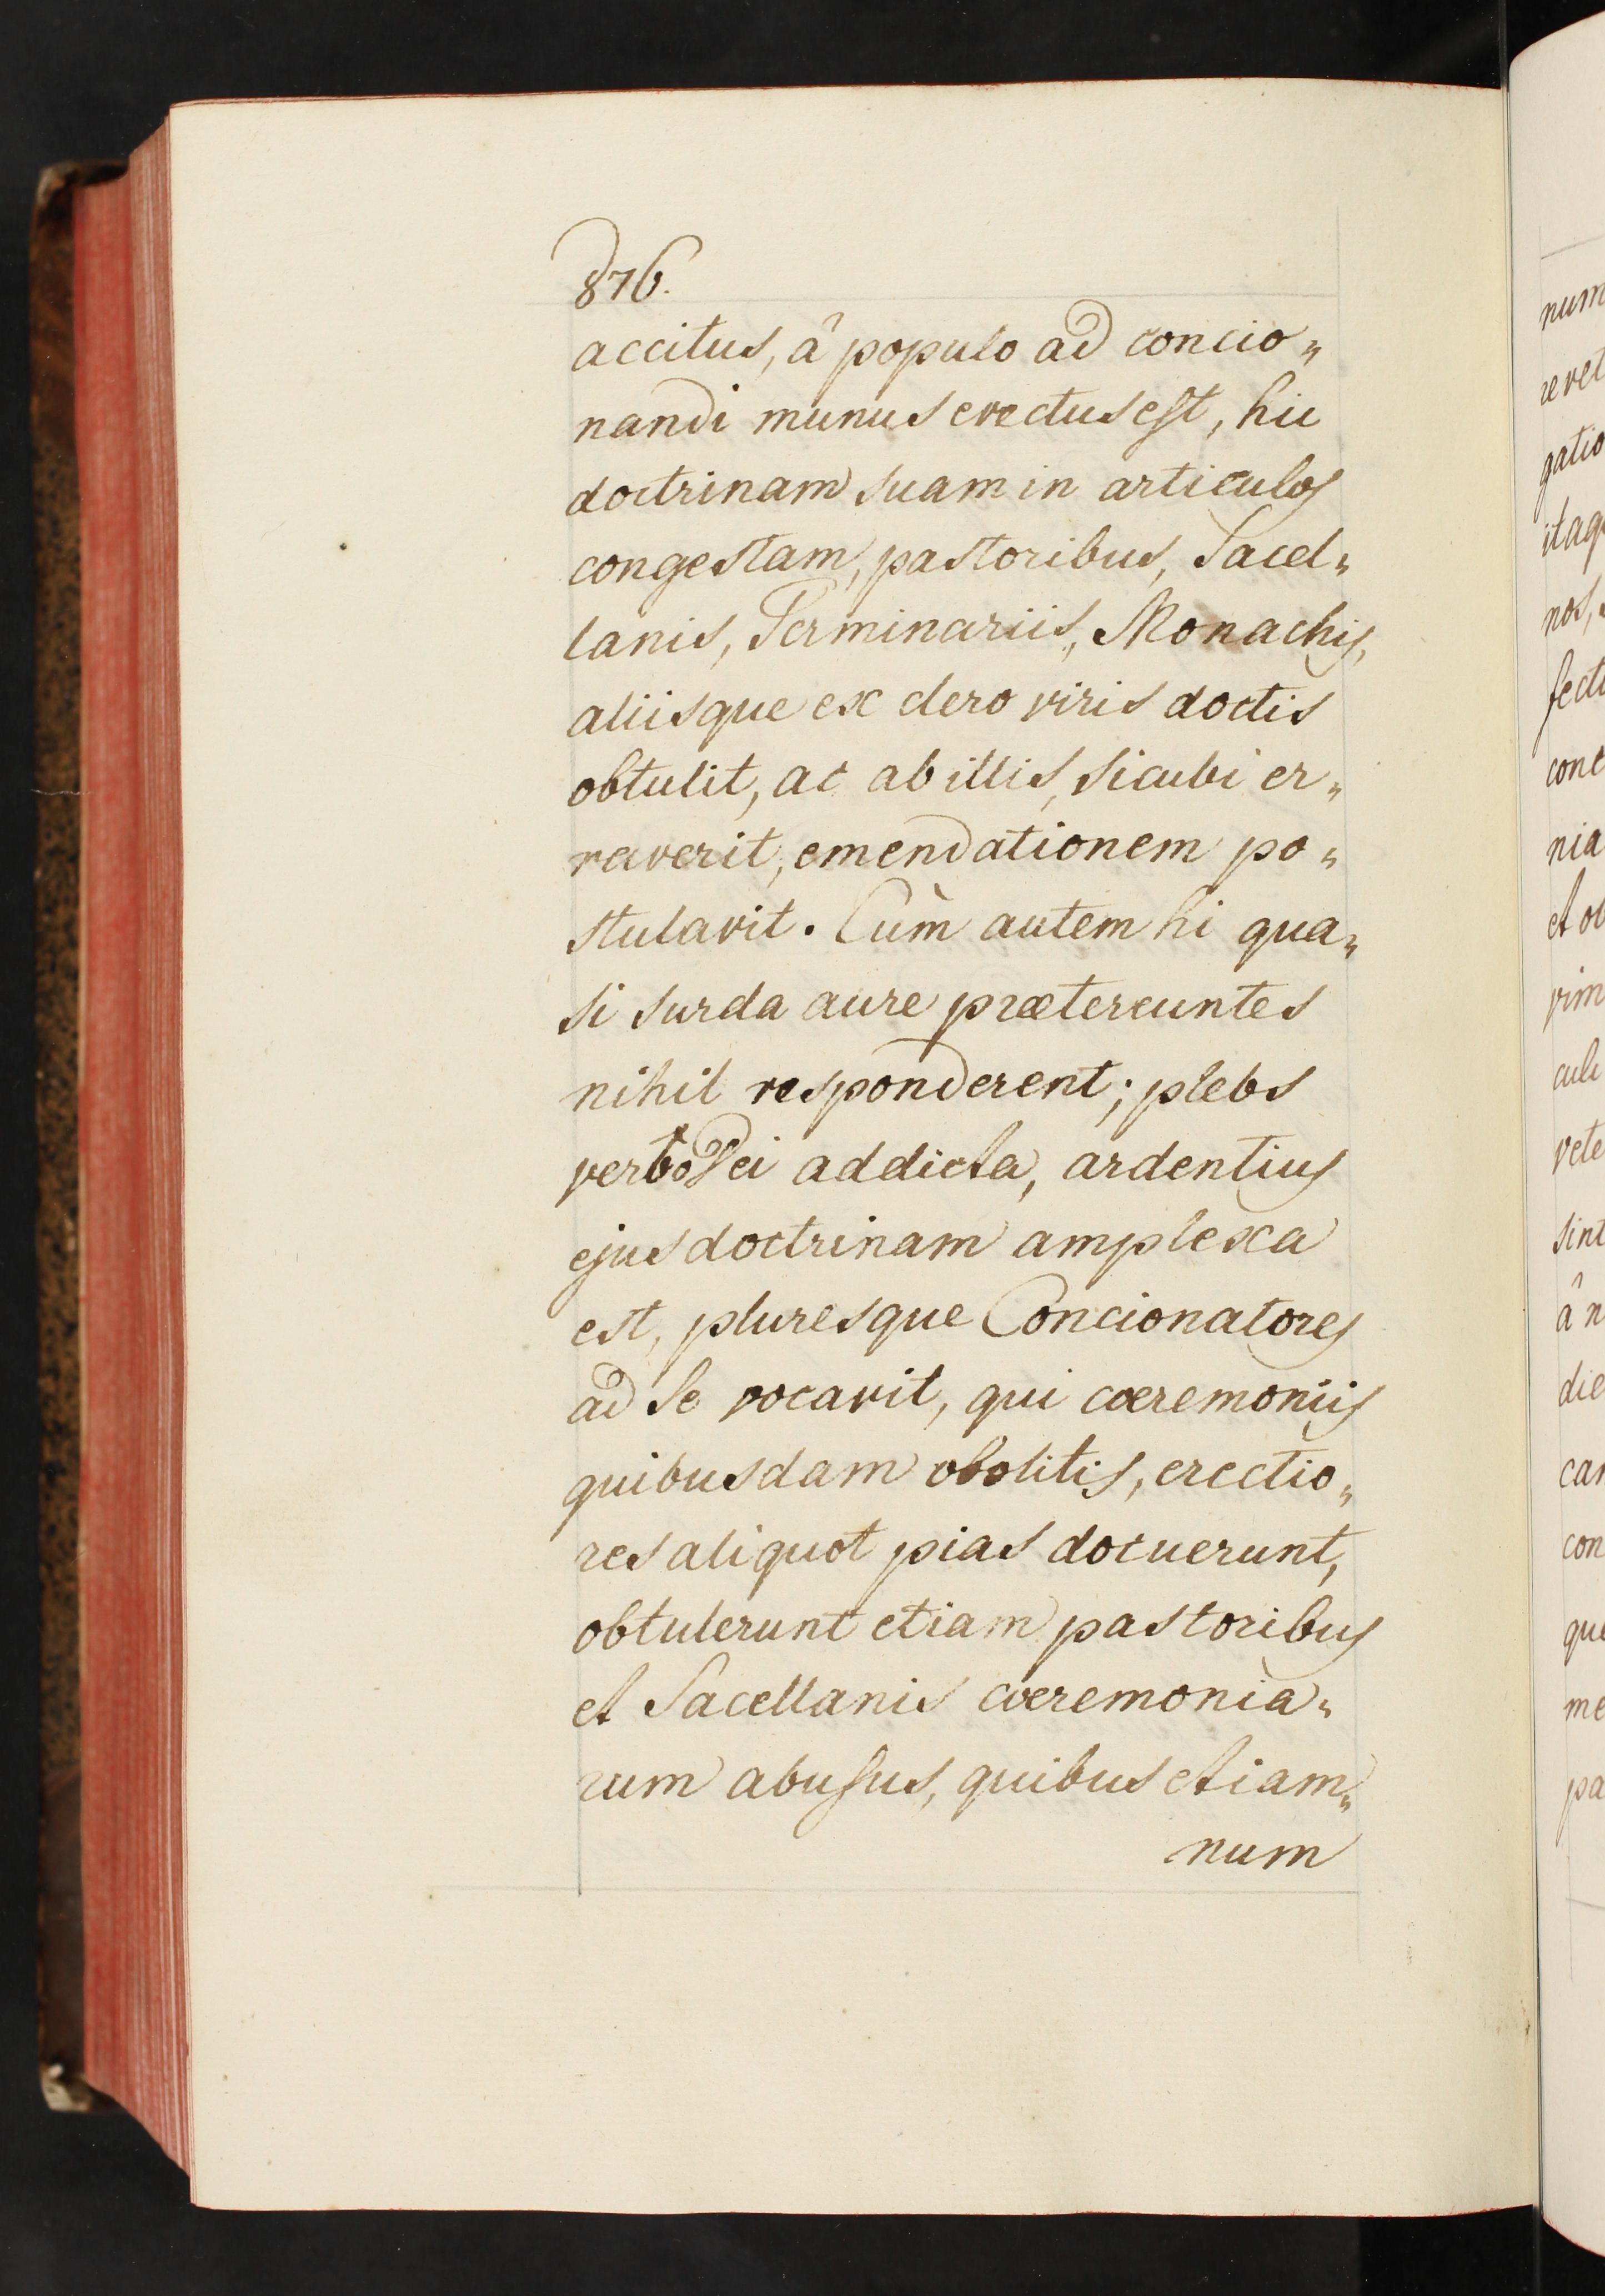 876.
accitus, â populo ad concio„
nandi munus evectus est, hic
doctrinam suam in articulos
congestam, pastoribus, Sacel„
lanis, Terminariis, Monachis,
aliisque ex clero viris doctis
obtulit, ac ab illis, sicubi er„
raverit, emendationem po„
stulavit. Cùm autem hi qua„
si surda aure prætereuntes
nihil responderent; plebs
verbo Dei addicta, ardentius
ejus doctrinam amplexa
est, pluresque Concionatores
ad se vocavit, qui cæremoniis
quibusdam obolitis, erectio„
res aliquot pias docuerunt,
obtulerunt etiam pastoribus
et Sacellanis cæremonia„
rum abusus, quibus etiam„
num
num
revet
gatio
itaq
nos,
fecti
conc
nia
et ob
vim
culi
vete
sint
â n
die
can
con
que
me
pa